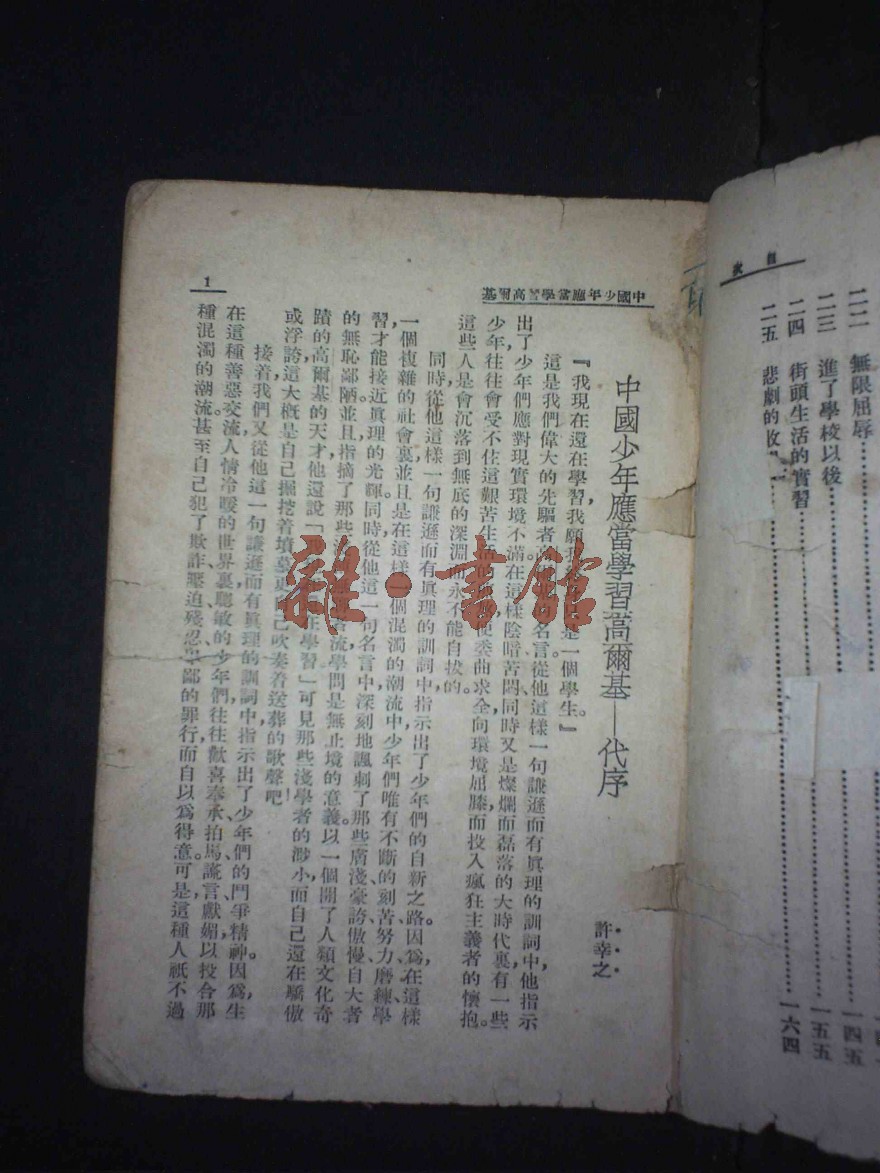 目次
二二 無限屈辱
二三 進了學校以後 一四五
二四 街頭生活的實習 一五五
二五 悲劇的收 一六四
中國少年應當學習高爾基
中國少年應當學習高爾基——代序
許幸之
『我現在還在學習,我願我 是一個學生。』
這是我們偉大的先驅者 名言。從他這樣一句謙遜而有眞理的訓詞中,他指示
出了少年們應對現實環境不滿在這樣陰暗苦悶,同時又是燦爛而磊落的大時代裏,有一些
少年往往會受不住這艱苦生活的 便委曲求全向環境屈膝,而投入瘋狂主義者的懷抱。
這些人是會沉落到無底的深淵而永不能自拔的。
同時,從他這樣一句謙遜而有眞理的訓詞中,指示出了少年們的自新之路。因爲,在這樣
一個複雜的社會裏,並且是在這樣一個混濁的潮流中,少年們唯有不斷的刻苦、努力、磨練、學
習,才能接近眞理的光輝。同時,從他這一句名言中,深刻地諷刺了那些膚淺、豪誇、傲慢、自大者
的無恥鄙陋,並且指摘了那些 者流,學問是無止境的意義。以一個開了人類文化奇
蹟的高爾基的天才,他還說「 在學習」可見那些淺學者的渺小,而自己還在驕傲
或浮誇,這大概是自己掘挖着墳墓,更 己吹奏着送葬的歌聲吧!
接着,我們又從他這一句謙遜而有眞理的訓詞中,指示出了少年們的鬥爭精神。因爲,生
在這種善惡交流,人情冷暖的世界裏,聰敏的少年們,往往歡喜奉承、拍馬、謊言、獻媚,以投合那
種混濁的潮流。甚至自己犯了欺詐、壓迫、殘忍、 鄙的罪行,而自以爲得意。可是,這種人祇不過
1
雜·書館